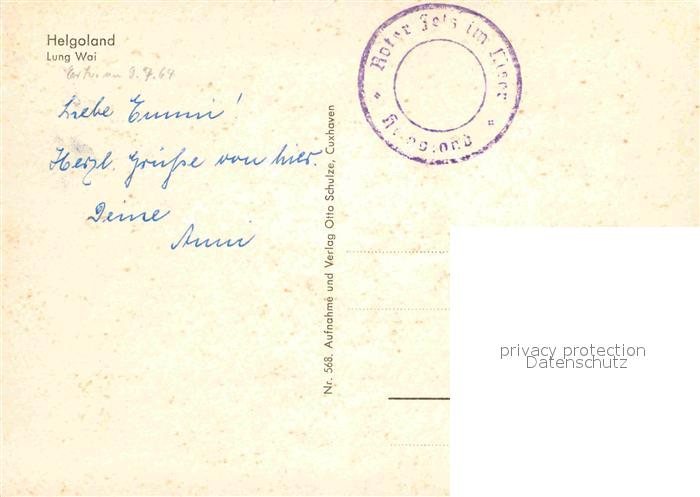 Helgoland
Lung Wai
9.7.64
Liebe Emmi!
Herzl. Grüße von hier.
Deine
Anni
Nr. 568. Aufnahme und Verlag Otto Schulze, Cuxhaven
Roter Fels im Meer
Helgoland
privacy protection
Datenschutz